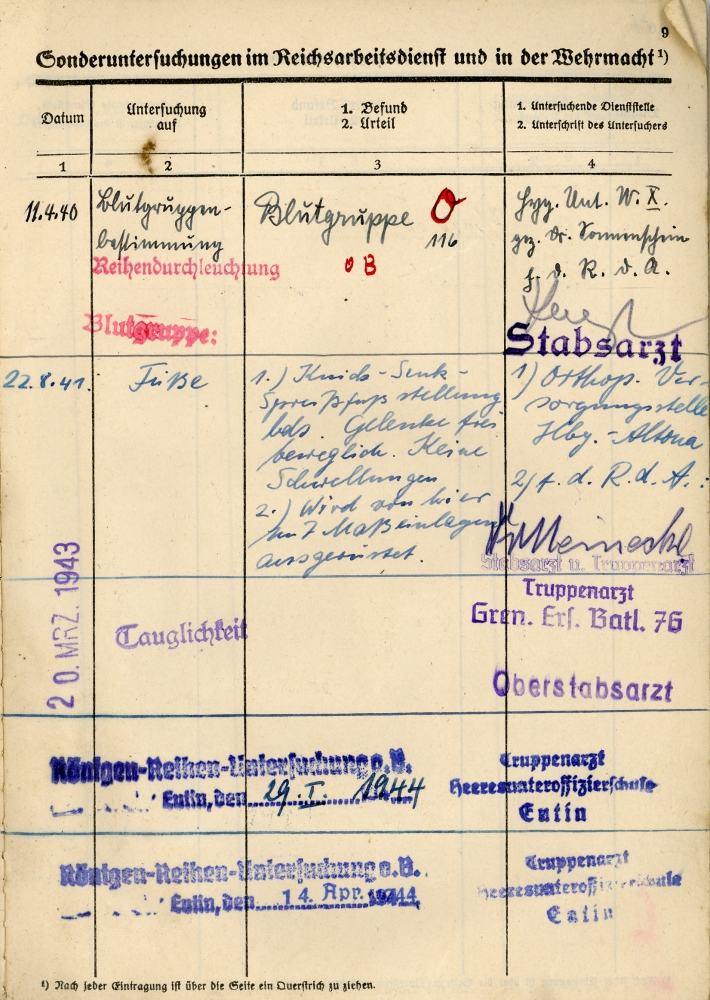 9
Sonderuntersuchungen im Reichsarbeitsdienst und in der Wehrmacht ¹)
Datum
Untersuchung
auf
1. Befund
2. Urteil
1. Untersuchende Dienststelle
2. Unterschrift des Untersuchers
1
2
3
4
11.4.40
Blutgruppen-
bestimmung
Blutgruppe O
116
Hyg. Unt. W. X.
gez. Dr. Sonnenschein
f. d. R. d. A.
Reihendurchleuchtung
o B
Blutgruppe:
Stabsarzt
22.8.41.
Füße
1.) Knick-Senk-
Spreizfußstellung
bds. Gelenke frei
beweglich. Keine
Schwellungen
2.) Wird von hier
mit Maßeinlagen
ausgerüstet.
1) Orthop. Ver-
sorgungsstelle
Hbg.-Altona
2) f. d. R. d. A.:
Dr Meinecke
Stabsarzt u. Truppenarzt
20. MRZ. 1943
Tauglichkeit
Truppenarzt
Gren. Ers. Batl. 76
Oberstabsarzt
Röntgen-Reihen-Untersuchung o. B.
Eutin, den 29. I. 1944
Truppenarzt
Heeresunteroffizierschule
Eutin
Röntgen-Reihen-Untersuchung o. B.
Eutin, den 14. Apr. 1944
Truppenarzt
Heeresunteroffizierschule
Eutin
¹) Nach jeder Eintragung ist über die Seite ein Querstrich zu ziehen.